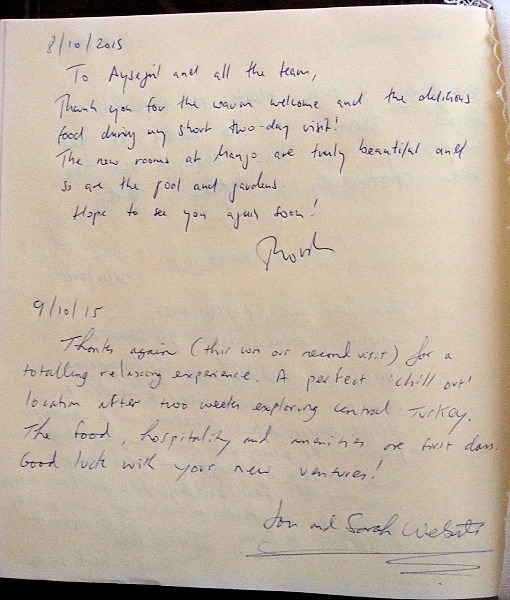 8/10/2015
To Aysegül and all the team,
Thank you for the warm welcome and the delicious
food during my short two-day visit!
The new rooms at Mango are truly beautiful and
so are the pool and gardens
Hope to see you again soon!
9/10/15
Thanks again (this was our second visit) for a
totalling relaxing experience. A perfect 'chill out'
location after two weeks exploring central Turkey.
The food, hospitality and amenities are first class.
Good luck with your new ventures!
Jon and Sarah